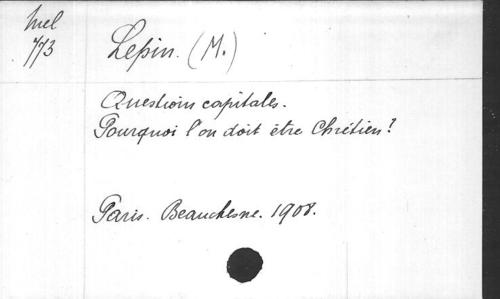 Mel
773
Lepin. (M.)
Questions capitales.
Pourquoi l'on doit être Chrétien?
Paris. Beauchesne. 1908.